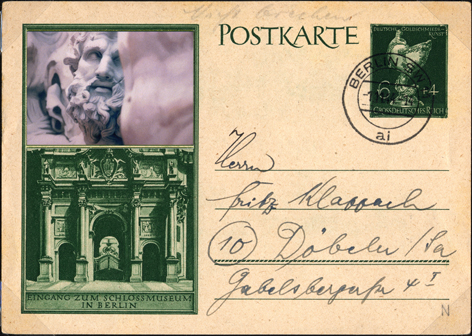 POSTKARTE
DEUTSCHE GOLDSCHMIEDE-
KUNST
6+4
GROSSDEUTSCHES REICH
BERLIN
ai
Herrn
Fritz Klappach
(10) Döbeln /Sa
Gabelsbergerstraße 4 I
EINGANG ZUM SCHLOSSMUSEUM
IN BERLIN
N